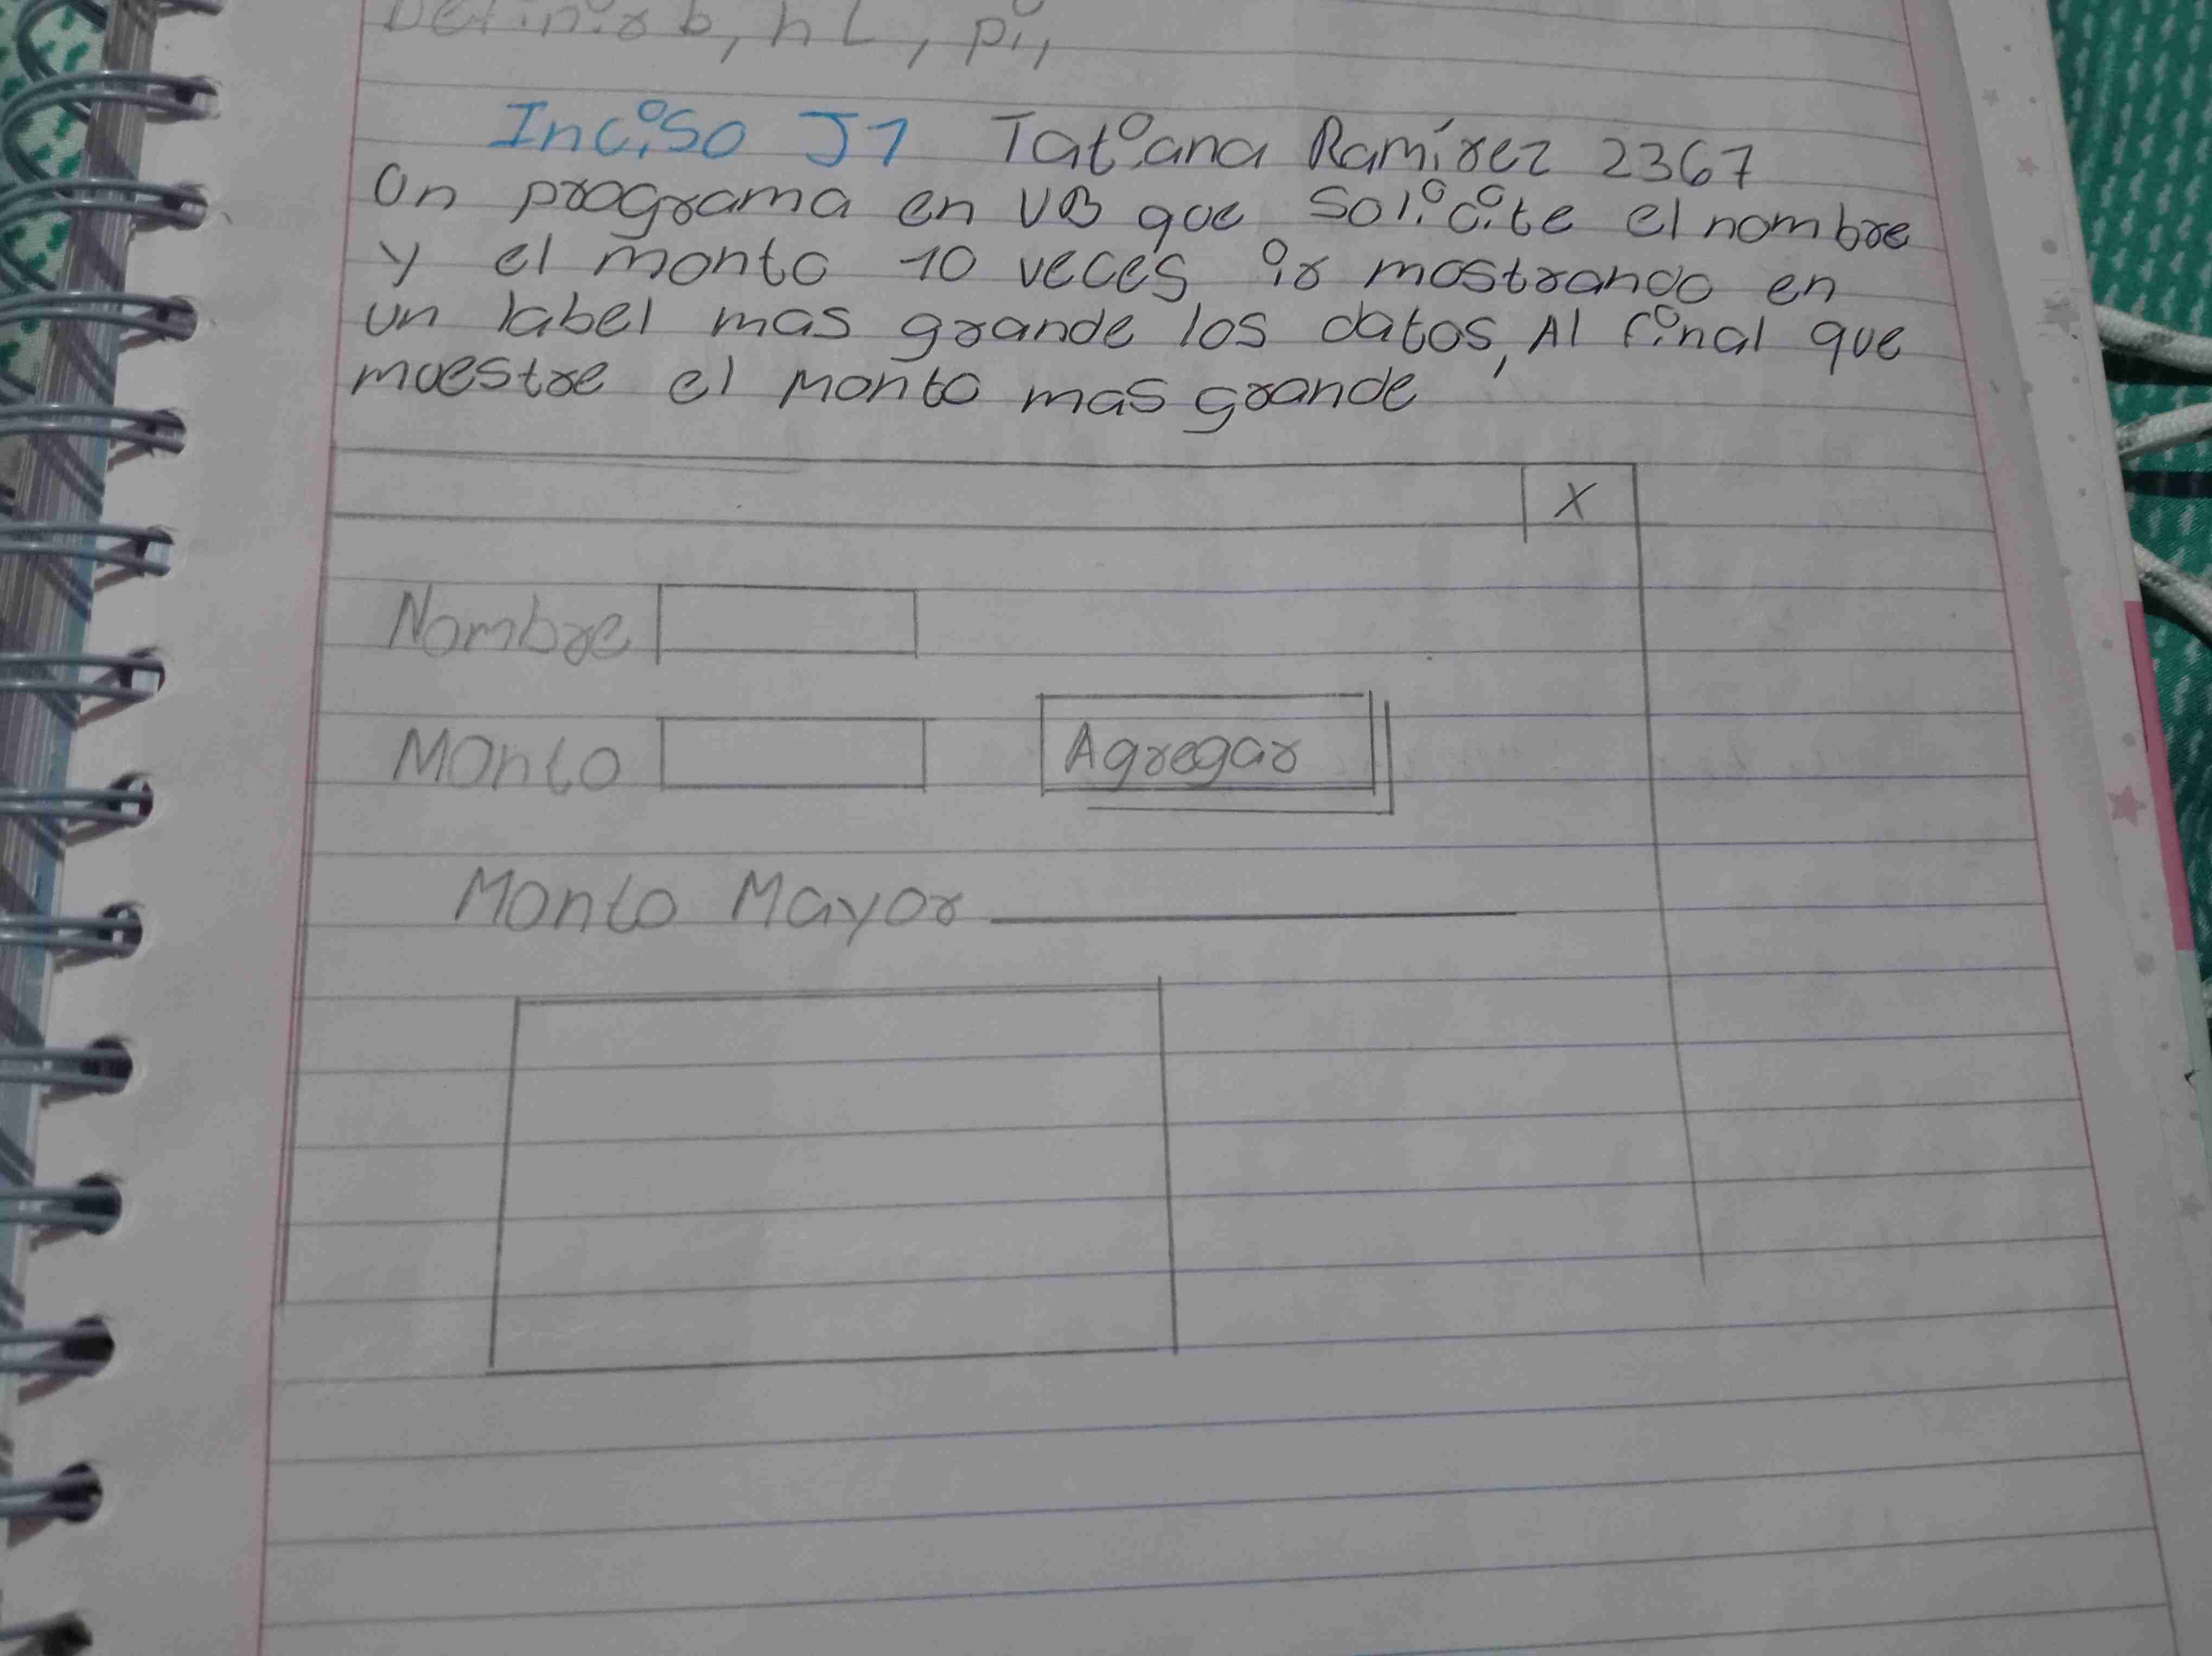 Definir b, h L, pi,
Inciso J1 Tatiana Ramírez 2367
Un programa en VB que solicite el nombre
y el monto 10 veces ir mostrando en
un label mas grande los datos, Al final que
muestre el Monto mas grande
X
Nombre
Monto Agregar
Monto Mayor